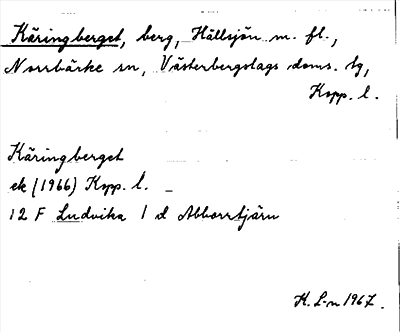 Käringberget, berg, Hällsjön m. fl.,
Norrbärke sn, Västerbergslags doms. tg,
Kopp. l.
Käringberget
ek (1966) Kopp. l. –
12 F Ludvika 1 d Abborrtjärn
K. L-n 1967.